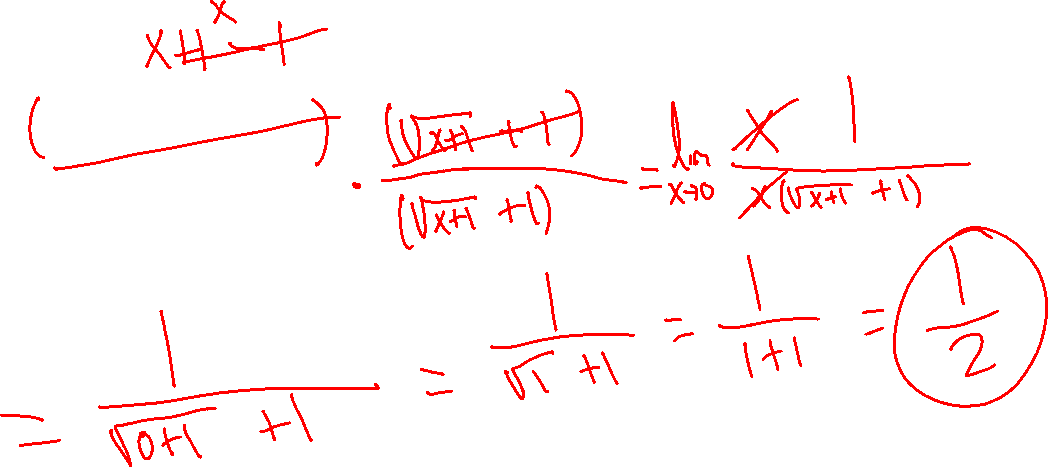 x
x+1-1
( ) · (√x+1 + 1) / (√x+1 + 1) = lim x→0 x 1 / x(√x+1 + 1)
= 1 / √0+1 + 1 = 1 / √1 + 1 = 1 / 1+1 = 1 / 2